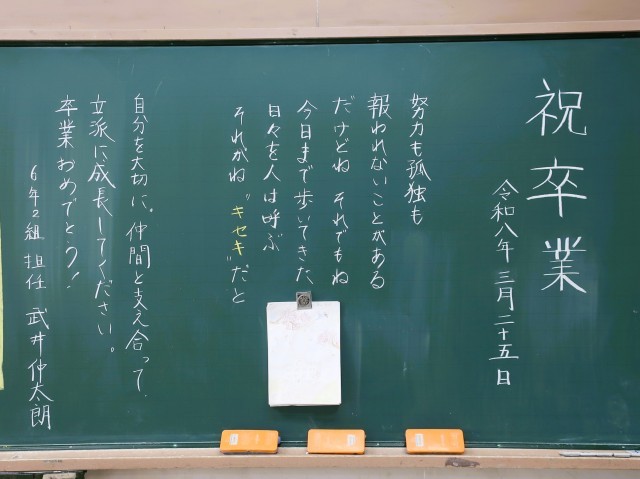 祝卒業
令和八年 三月二十五日
努力も孤独も
報われないことがある
だけどね それでもね
今日まで歩いてきた
日々を人は呼ぶ
それがね"キセキ"だと
自分を大切に。仲間と支え合って、
立派に成長してください。
卒業おめでとう!
6年2組 担任 武井仲太朗